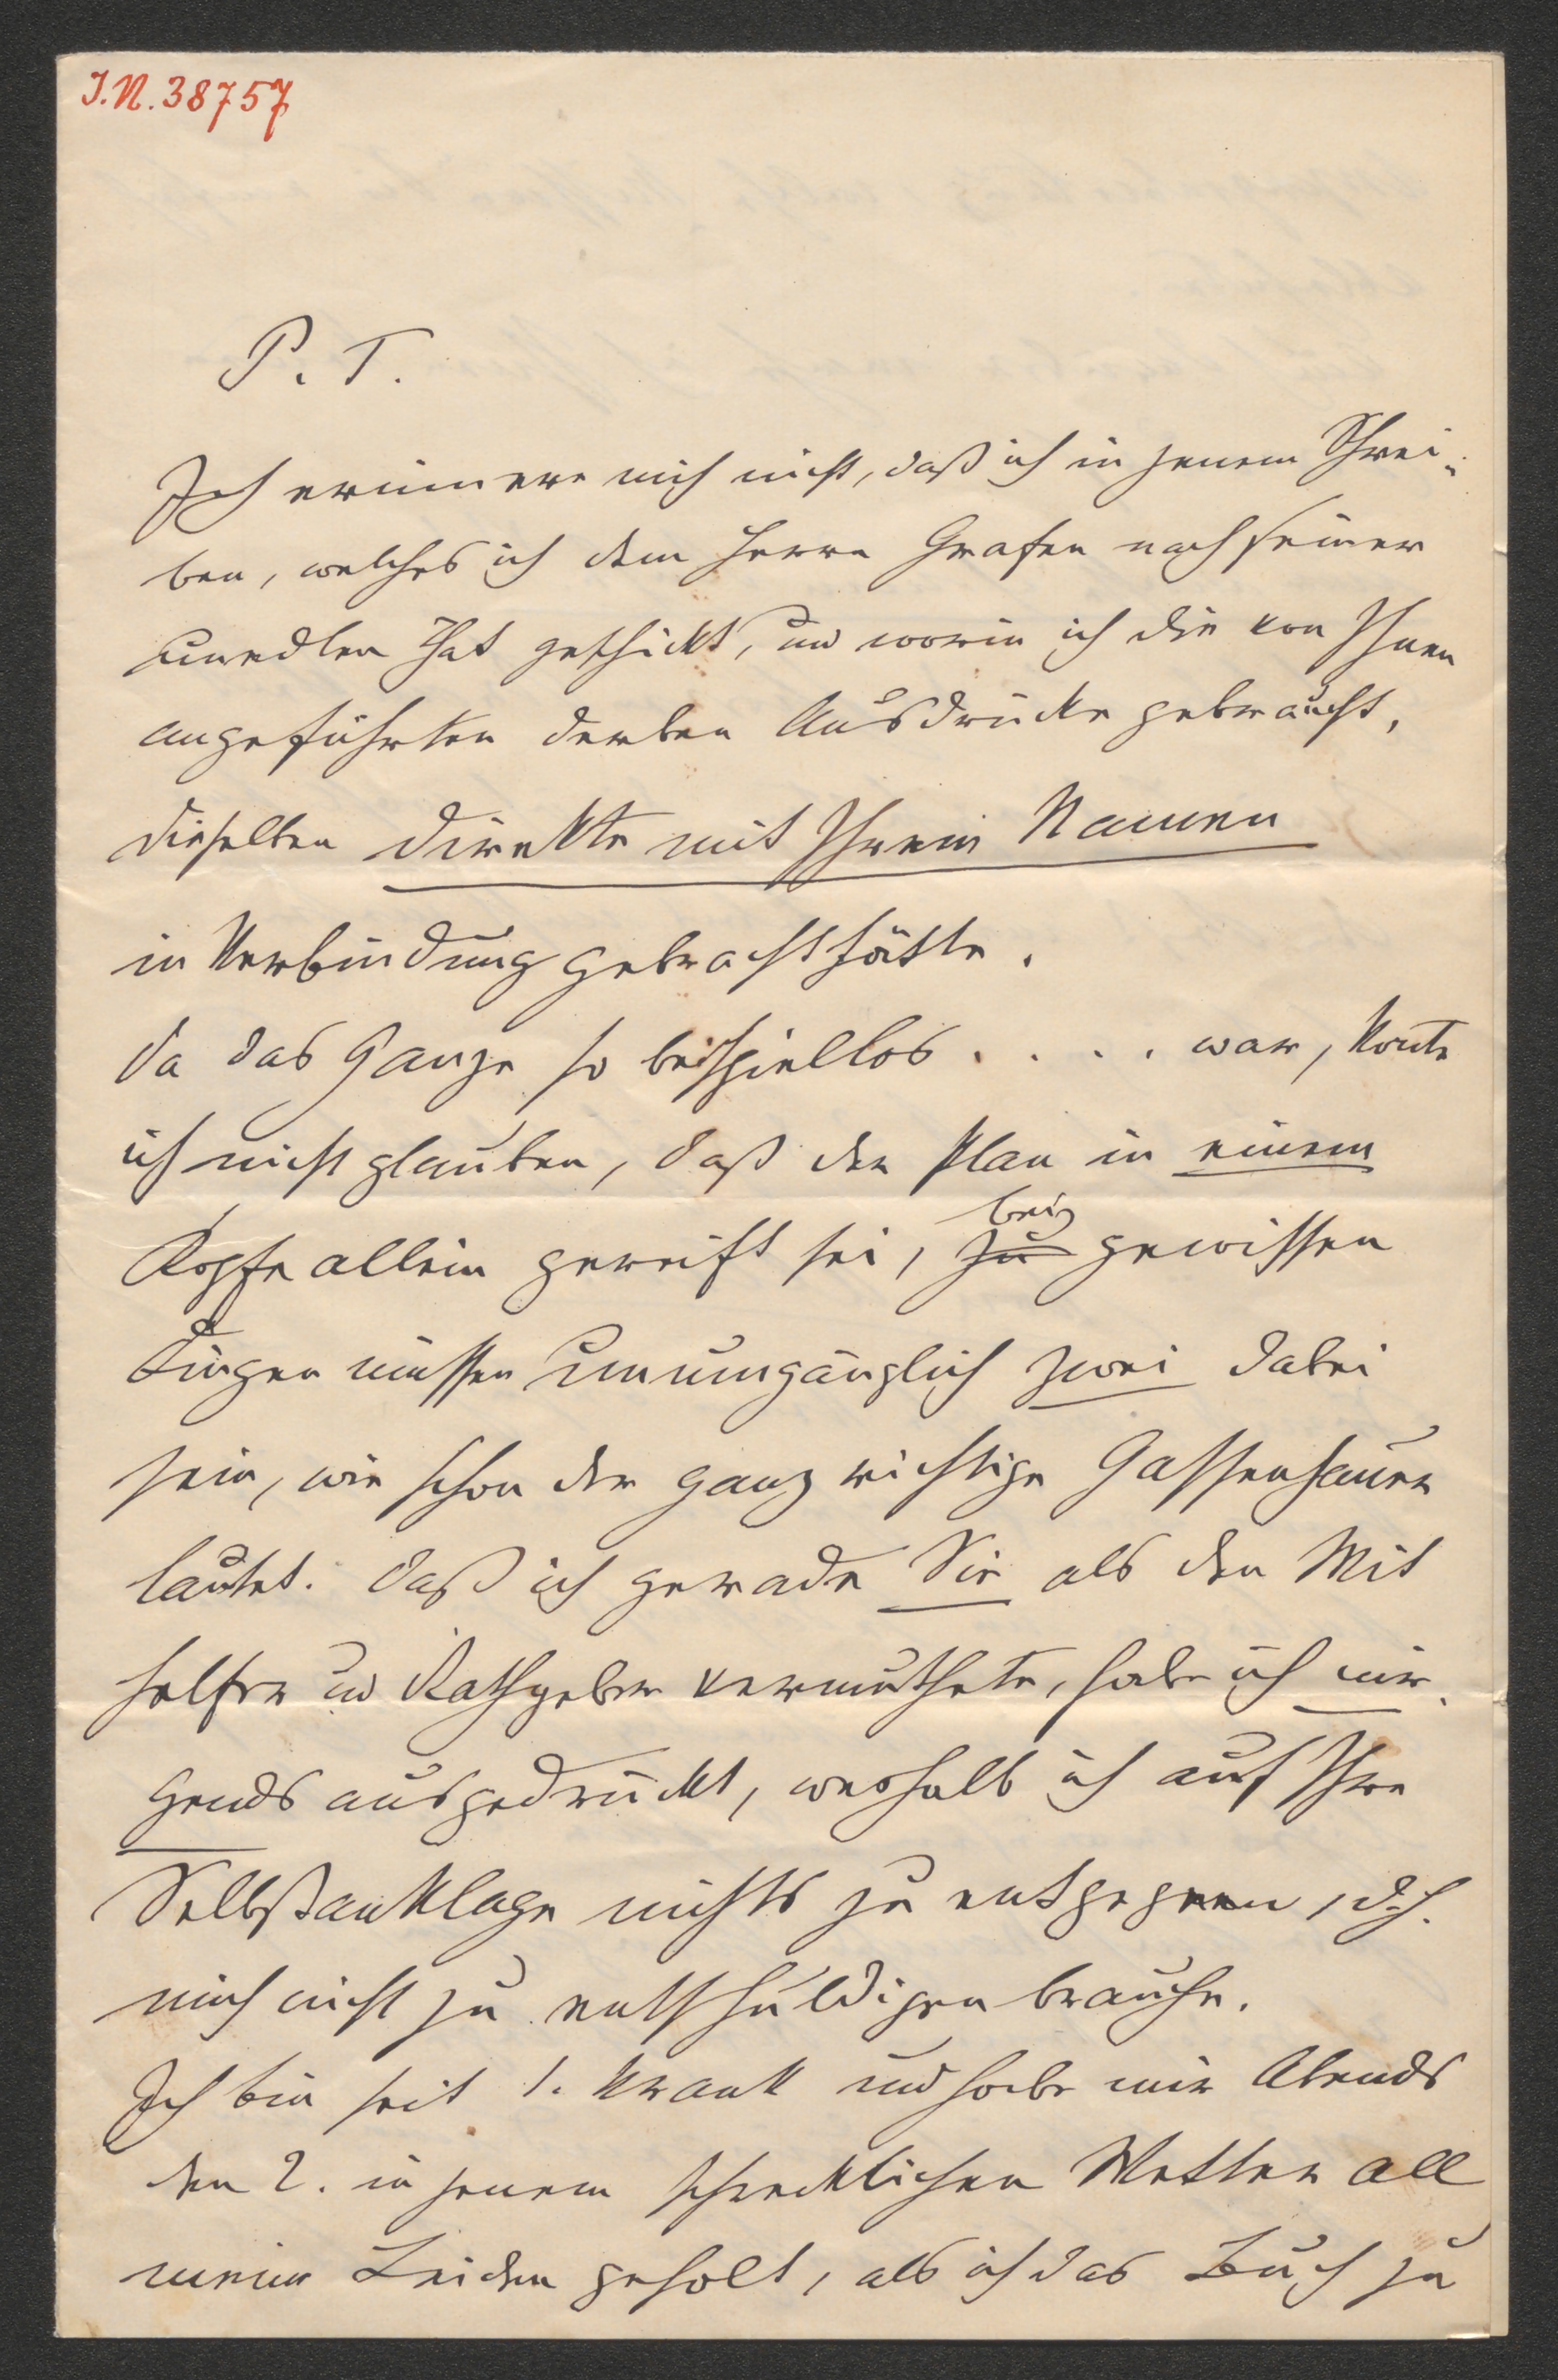 I.N. 38757
P. T.
Ich erinnere mich nicht, daß ich in jenem Schrei-
ben, welches ich dem Herrn Grafen nach seiner
unedlen That geschickt, und worin ich die von Ihnen
angeführten derben Ausdrücke gebraucht,
dieselben direkte mit Ihrem Namen
in Verbindung gebracht hätte.
Da das Ganze so beispiellos . . . . war, konte
ich nicht glauben, daß der Plan in einem
Kopfe allein gereift sei, zu bei gewissen
Dingen müssen unumgänglich zwei dabei
sein, wie schon der ganz richtige Gassenhauer
lautet. Daß ich gerade Sie als den Mit
helfer und Rathgeber vermuthete, habe ich nir-
gends ausgedrückt, weshalb ich auf Ihre
Selbstanklage nichts zu entgegnen, d.h.
mich nicht zu entschuldigen brauche.
Ich bin seit 1. krank und habe mir Abends
den 2. in jenem schrecklichen Wetter all
meine Leiden geholt, als ich das Buch zu